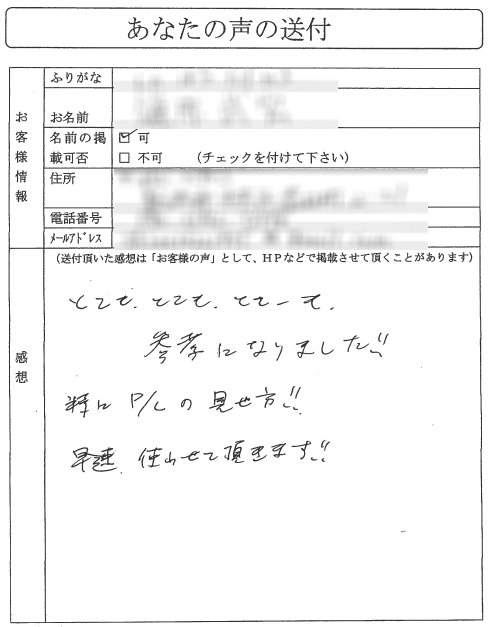 あなたの声の送付
ふりがな
お名前
お客様情報
名前の掲載可否
☑ 可
☐ 不可 (チェックを付けて下さい)
住所
電話番号
ﾒｰﾙｱﾄﾞﾚｽ
(送付頂いた感想は「お客様の声」として、ＨＰなどで掲載させて頂くことがあります)
感想
とても、とても、とてーも、
参考になりました!!
特に P/L の 見せ方!!
早速、使わせて頂きます!!